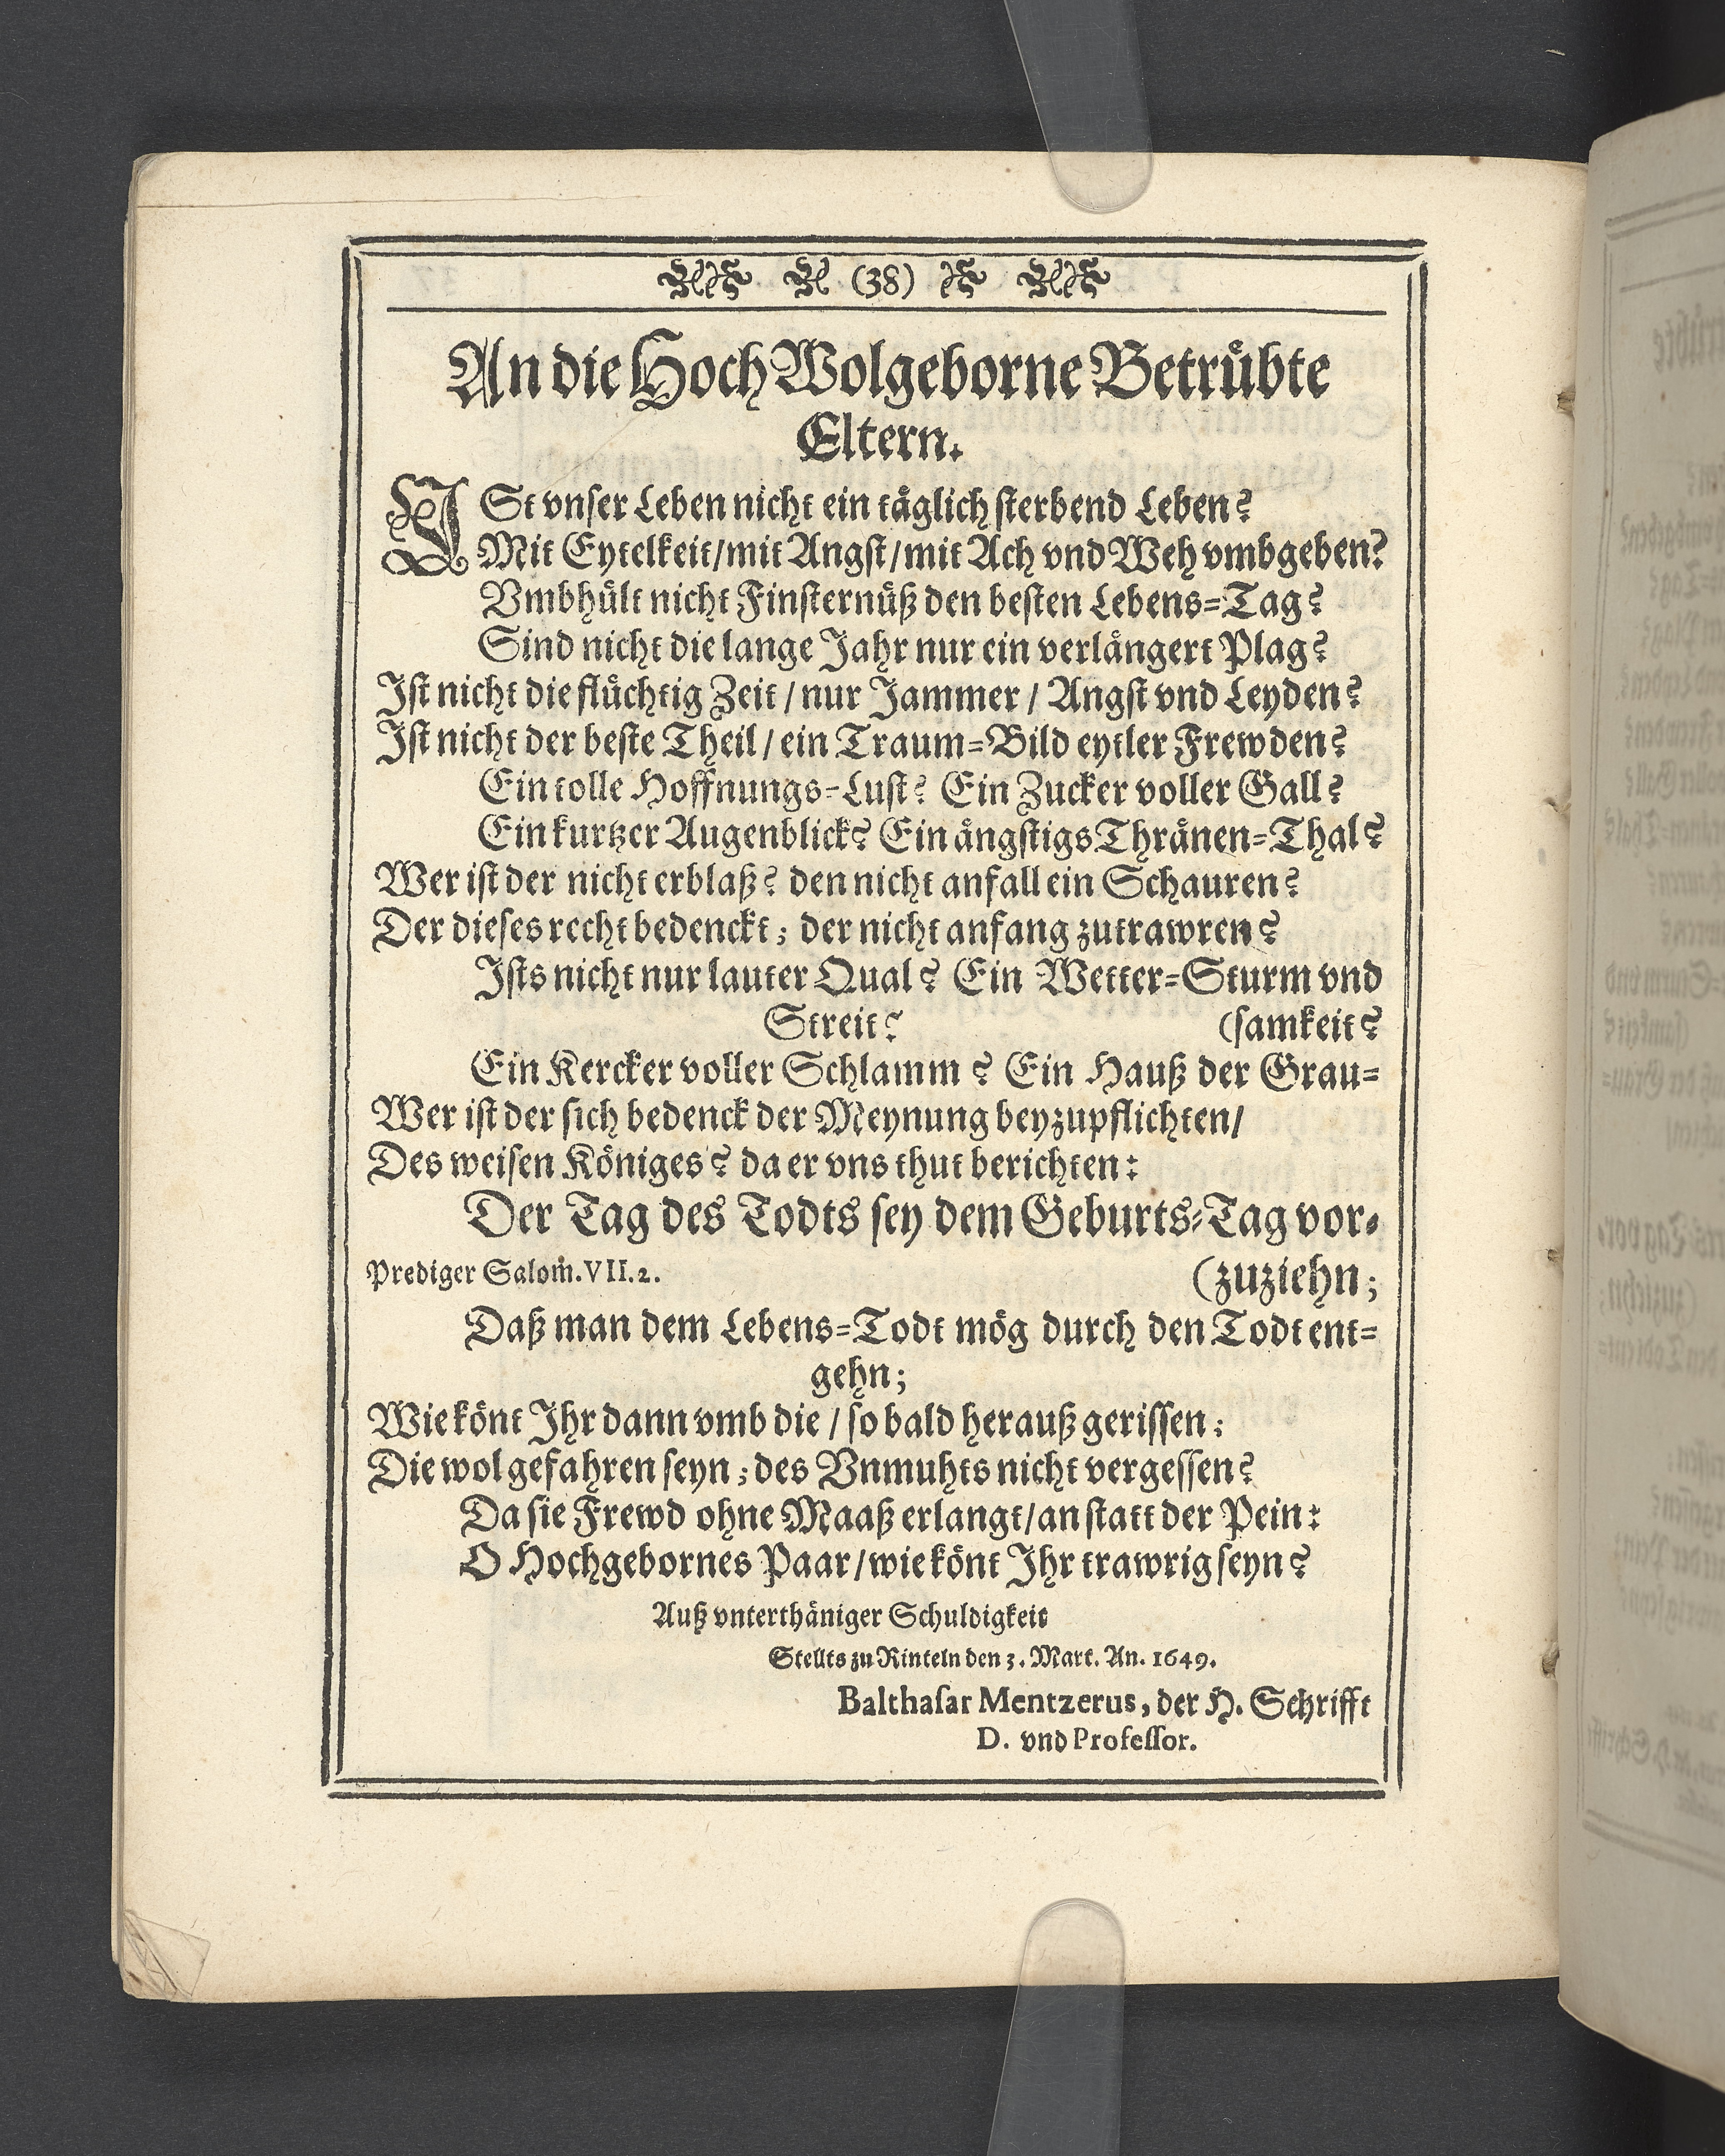 (38)
An die HochWolgeborne Betrübte
Eltern.
ISt vnser Leben nicht ein täglich sterbend Leben?
Mit Eytelkeit/mit Angst/mit Ach vnd Weh vmbgeben?
Vmbhült nicht Finsternüß den besten Lebens-Tag?
Sind nicht die lange Jahr nur ein verlängert Plag?
Ist nicht die flüchtig Zeit / nur Jammer / Angst vnd Leyden?
Ist nicht der beste Theil / ein Traum-Bild eytler Frewden?
Ein tolle Hoffnungs-Lust? Ein Zucker voller Gall?
Ein kurtzer Augenblick? Ein ängstigs Thränen-Thal?
Wer ist der nicht erblaß? den nicht anfall ein Schauren?
Der dieses recht bedenckt; der nicht anfang zutrawren?
Ists nicht nur lauter Qual? Ein Wetter-Sturm vnd
Streit? (samkeit?
Ein Kercker voller Schlamm? Ein Hauß der Grau-
Wer ist der sich bedenck der Meynung beyzupflichten/
Des weisen Königes? da er vns thut berichten:
Der Tag des Todts sey dem Geburts-Tag vor-
Prediger Salom̃. VII. 2. (zuziehn;
Daß man dem Lebens-Todt mög durch den Todt ent-
gehn;
Wie könt Ihr dann vmb die / so bald herauß gerissen;
Die wol gefahren seyn; des Vnmuhts nicht vergessen?
Da sie Frewd ohne Maaß erlangt/an statt der Pein:
O Hochgebornes Paar/wie könt Ihr trawrig seyn?
Auß vnterthäniger Schuldigkeit
Stellts zu Rinteln den 3. Mart. An. 1649.
Balthasar Mentzerus, der H. Schrifft
D. vnd Professor.